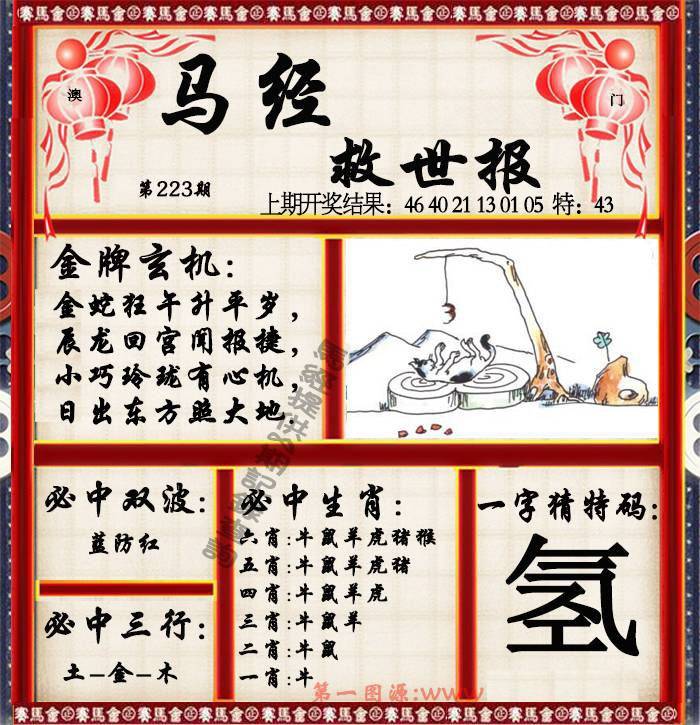 賽馬會 賽馬會 賽馬會 賽馬會 賽馬會 賽馬會 賽馬會 賽馬會
澳
门
马经
救世报
第223期
上期开奖结果：46 40 21 13 01 05 特：43
金牌玄机：
金蛇狂午升平岁，
辰龙回宫闻报捷，
小巧玲珑有心机，
日出东方照大地.
必中双波：
蓝防红
必中三行：
土-金-木
必中生肖：
六肖:牛鼠羊虎猪猴
五肖:牛鼠羊虎猪
四肖:牛鼠羊虎
三肖:牛鼠羊
二肖:牛鼠
一肖:牛
一字猜特码：
氢
第一图源:www